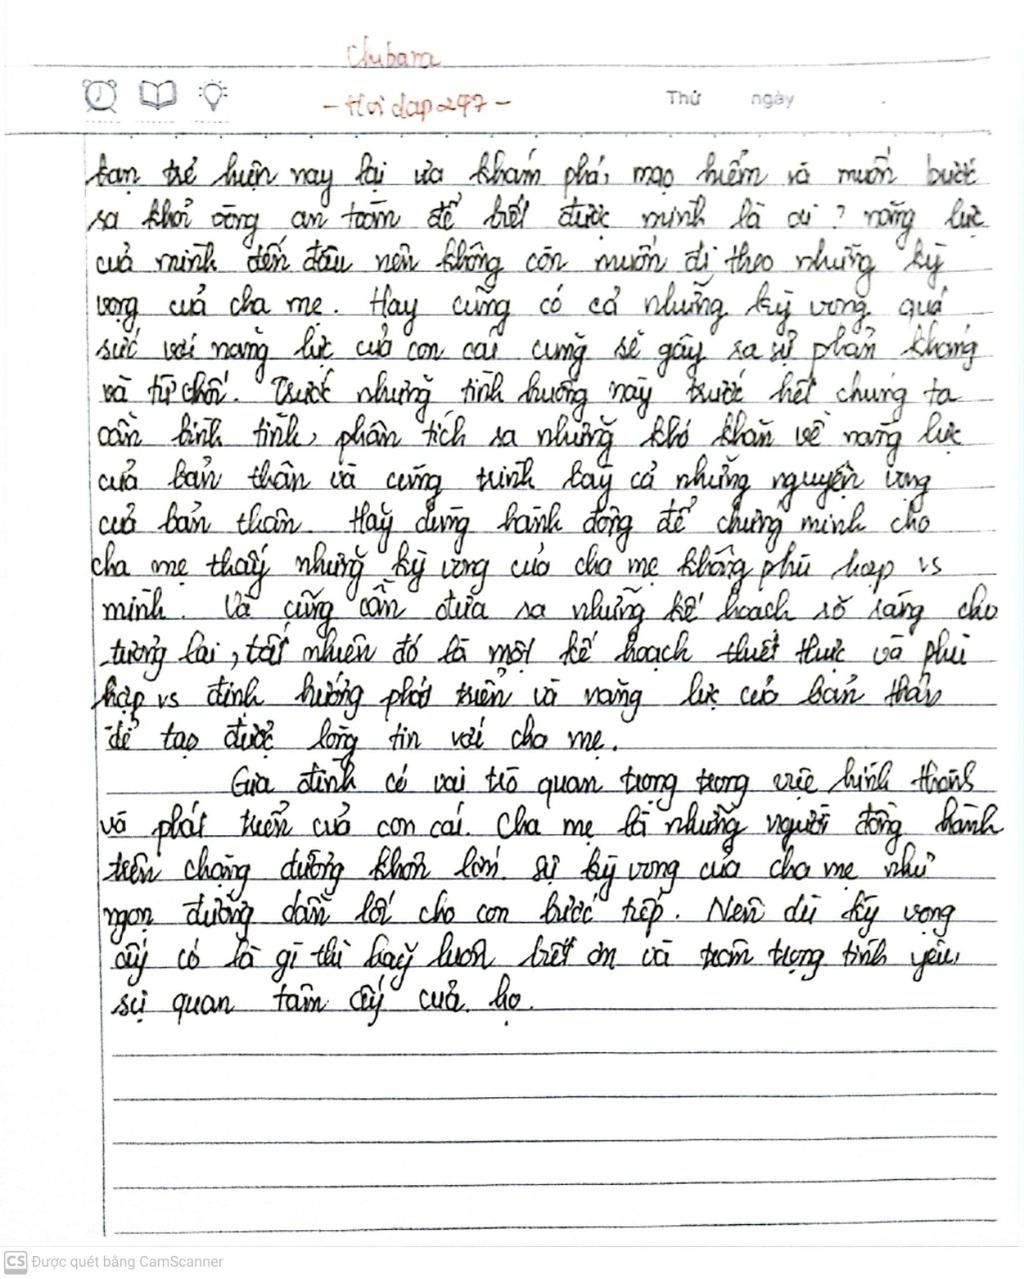 Chubara
- Hoi dap247 -
Thứ ngày
bạn trẻ hiện nay lại ưa khám phá, mạo hiểm và muốn bước
ra khỏi vòng an toàn để biết được mình là ai? năng lực
của mình đến đâu nên không còn muốn đi theo những kỳ
vọng của cha mẹ. Hay cũng có cả những kỳ vọng quá
sức với năng lực của con cái cũng sẽ gây ra sự phản kháng
và từ chối. Trước những tình huống này trước hết chúng ta
cần bình tĩnh, phân tích ra những khó khăn về năng lực
của bản thân và cũng trình bày cả những nguyện vọng
của bản thân. Hãy dùng hành động để chứng minh cho
cha mẹ thấy những kỳ vọng của cha mẹ không phù hợp vs
mình. Và cũng cần đưa ra những kế hoạch rõ ràng cho
tương lai, tất nhiên đó là một kế hoạch thiết thực và phù
hợp vs định hướng phát triển và năng lực của bản thân
để tạo được lòng tin với cha mẹ.
Gia đình có vai trò quan trọng trong việc hình thành
và phát triển của con cái. Cha mẹ là những người đồng hành
trên chặng đường khôn lớn. Sự kỳ vọng của cha mẹ như
ngọn đường dẫn lối cho con bước tiếp. Nên dù kỳ vọng
ấy có là gì thì hãy luôn biết ơn và trân trọng tình yêu,
sự quan tâm ấy của họ.
CS Được quét bằng CamScanner